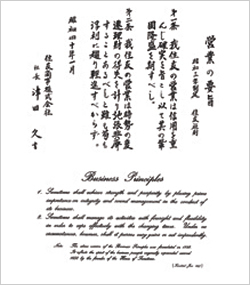 営業の要旨
昭和三年制定 住友社則
第一条 我住友の営業は信用を重んじ確実を旨とし以て其の鞏固隆盛を期すべし
第二条 我住友の営業は時勢の変遷理財の得失を計り弛張興廃することあるべしと雖も苟も浮利に趨り軽進すべからず
昭和四十年一月
住友商事株式会社
社長 津田久
Business Principles
1. Sumitomo shall achieve strength and prosperity by placing prime
importance on integrity and sound management in the conduct of
its business.
2. Sumitomo shall manage its activities with foresight and flexibility
in order to cope effectively with the changing times. Under no
circumstances, however, shall it pursue easy gains or act imprudently.
Note: The above version of the Business Principles was formulated in
It reflects the spirit of the
by the founder of the House of Sumitomo.